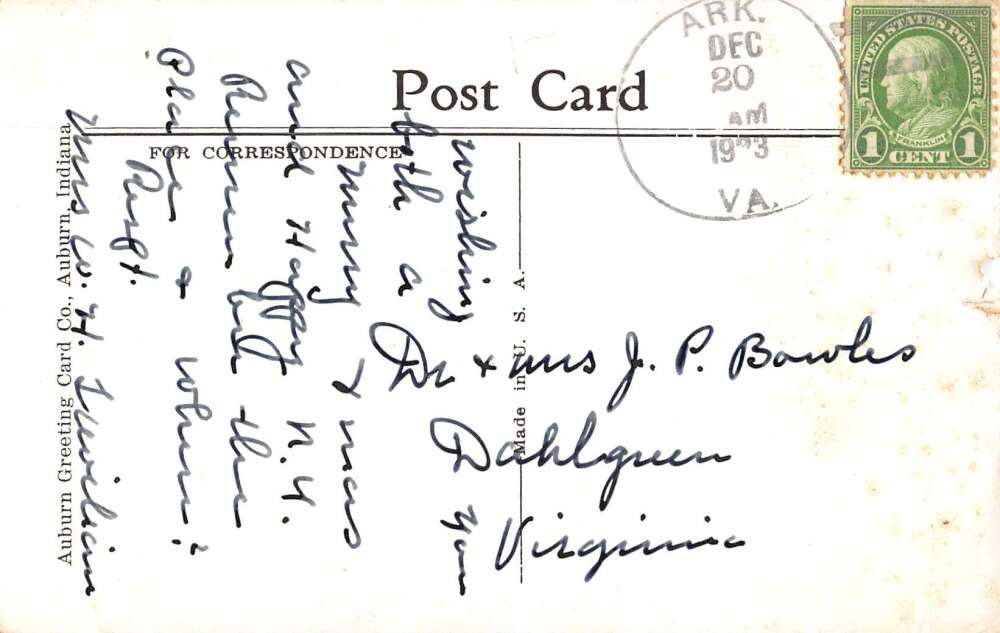 Post Card
FOR CORRESPONDENCE
ARK.
DEC
20
AM
VA.
UNITED STATES POSTAGE
FRANKLIN
1 CENT 1
wishing you
both a
Merry Xmas
and Happy N.Y.
Remember the
Place & when?
Resft.
Mrs W. H.
Dr & Mrs J. P. Bowles
Dahlgreen
Virginia
Made in U. S. A.
Auburn Greeting Card Co., Auburn, Indiana